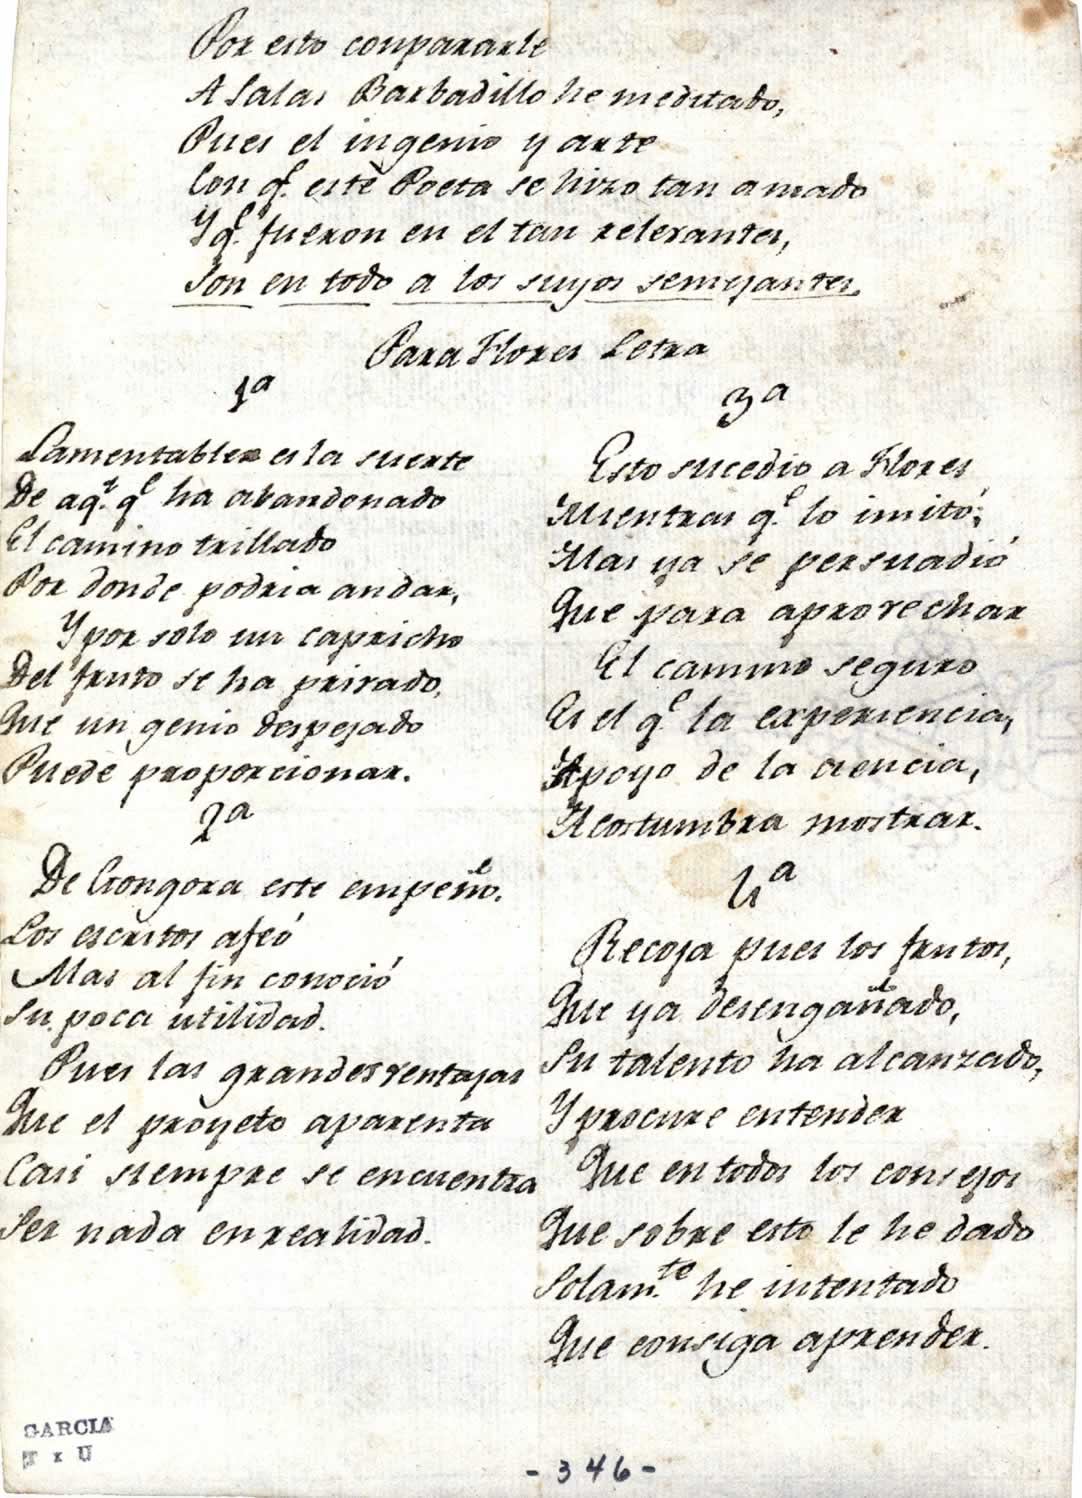 Por esto conpararle
A Salas Barbadillo he meditado,
Pues el ingenio y arte
Con q.e este Poeta se hizo tan amado
Y q.e fueron en el tan relevantes,
Son en todo a los suyos semejantes.
Para Flores Letra
1a
Lamentable es la suerte
De aq.l q.e ha abandonado
El camino trillado
Por donde podria andar,
Y por solo un capricho
Del fruto se ha privado,
Que un genio despejado
Puede proporcionar.
2a
De Gongora este empeño.
Los escritos afeó
Mas al fin conoció
Su poca utilidad.
Pues las grandes ventajas
Que el proyeto aparenta
Casi siempre se encuentra
Ser nada en realidad.
3a
Esto sucedio a Flores
Mientras q.e lo imitó;
Mas ya se persuadió
Que para aprovechar
El camino seguro
Es el q.e la experiencia,
Apoyo de la ciencia,
Acostumbra mostrar.
4a
Recoja pues los frutos,
Que ya desengañado,
Su talento ha alcanzado,
Y procure entender
Que en todos los consejos
Que sobre esto le he dado
Solam.te he intentado
Que consiga aprender.
GARCIA
x U
- 346 -